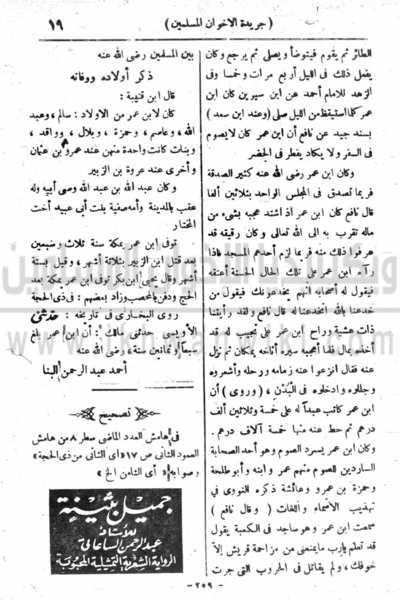 (جريدة الاخوان المسلمين)
١٩
الطائر ثم يقوم فيتوضأ ويصلى ثم يرجع وكان
يفعل ذلك فى الليل أربع مرات وخمسا وفى
الزهد للامام أحمد عن ابن سيرين كان ابن
عمر كلما استيقظ من الليل صلى (وعند ابن سعد)
بسند جيد عن نافع أن ابن عمر كان لا يصوم
فى السفر ولا يكاد يفطر فى الحضر
وكان ابن عمر رضى الله عنه كثير الصدقة
فربما تصدق فى المجلس الواحد بثلاثين ألفا
قال نافع كان ابن عمر اذا اشتد عجبه بشىء من
ماله تقرب به الى الله تعالى وكان رقيقه قد
عرفوا ذلك منه فربما لزم أحدهم المسجد فاذا
رآه ابن عمر على تلك الحال الحسنة أعتقه
فيقول له أصحابه انهم يخدعونك فيقول من
خدعنا بالله انخدعنا له قال نافع ولقد رأيتنا
ذات عشية وراح ابن عمر على نجيب له قد
أخذه بمال فلما أعجبه سيره أناخه بمكانه ثم نزل
عنه فقال انزعوا عنه زمامه ورحله وأشعروه
وجللوه وادخلوه فى البُدْنِ ، (وروى) أن
ابن عمر كاتب عبداً له على خمسة وثلاثين ألف
درهم ثم حط عنه منها خمسة آلاف درهم .
وكان ابن عمر يسرد الصوم وهو أحد الصحابة
الساردين للصوم منهم عمر وابنه وأبو طلحة
وحمزة بن عمرو وعائشة ذكره النووى فى
تهذيب الأسماء واللغات (وقال نافع)
سمعت ابن عمر وهو ساجد فى الكعبة يقول
قد تعلم يارب ما يمنعنى من مزاحمة قريش إلا
خوفك ، ولم يقاتل فى الحروب التى جرت
بين المسلمين رضى الله عنه
ذكر أولاده ووفاته
قال ابن قتيبة :
كان لابن عمر من الأولاد : سالم ، وعبد
الله ، وعاصم ، وحمزة ، وبلال ، وواقد ،
وبنات كانت واحدة منهن عند عمرو بن عثمان
وأخرى عند عروة بن الزبير
وكان عبد الله بن عبد الله وصى أبيه وله
عقب بالمدينة وأمه صفية بنت أبى عبيد أخت
المختار
توفى ابن عمر بمكة سنة ثلاث وسبعين
بعد قتل ابن الزبير بثلاثة أشهر ، وقيل بستة
أشهر وقال يحيى ابن بكر توفى ابن عمر بمكة بعد
الحج ودفن بالمحصب وزاد بعضهم : فى ذى الحجة
روى البخارى فى تاريخه : حدثنى
الأويسى حدثنى مالك : أن ابن عمر بلغ
سبعاً وثمانين سنة ، رضى الله عنه
أحمد عبد الرحمن البنا
تصحيح
فى هامش العدد الماضى سطر ٨ من هامش
العمود الثانى ص ١٧ «أى الثانى من ذى الحجة»
وصوابه «أى الثامن الخ»
جميل بثينة
للأستاذ
عبد الرحمن الساعاتى
الرواية الشعرية التمثيلية المحبوبة
- ٢٥٩ -